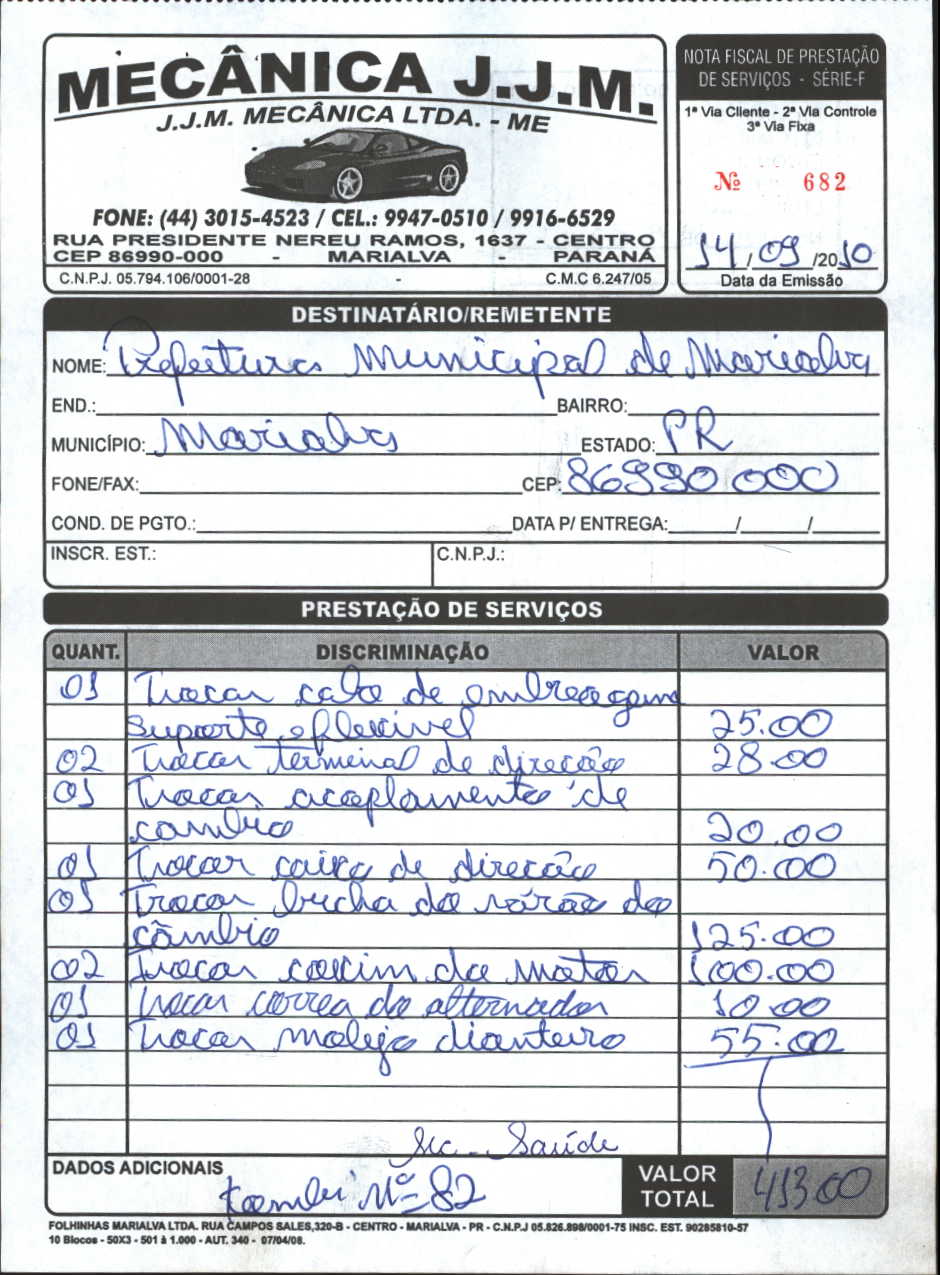 MECÂNICA J.J.M.
J.J.M. MECÂNICA LTDA. - ME
FONE: (44) 3015-4523 / CEL.: 9947-0510 / 9916-6529
RUA PRESIDENTE NEREU RAMOS, 1637 - CENTRO
CEP 86990-000 - MARIALVA - PARANÁ
C.N.P.J. 05.794.106/0001-28 - C.M.C 6.247/05
NOTA FISCAL DE PRESTAÇÃO
DE SERVIÇOS - SÉRIE-F
1ª Via Cliente - 2ª Via Controle
3ª Via Fixa
Nº 682
14/09/2010
Data da Emissão
DESTINATÁRIO/REMETENTE
NOME: Prefeitura Municipal de Marialva
END.: BAIRRO:
MUNICÍPIO: Marialva ESTADO: PR
FONE/FAX: CEP: 86990 000
COND. DE PGTO.: DATA P/ ENTREGA: / /
INSCR. EST.: C.N.P.J.:
PRESTAÇÃO DE SERVIÇOS
QUANT. DISCRIMINAÇÃO VALOR
01 Trocar cabo de embreagem
suporte e flexivel 25.00
02 Trocar terminal de direcão 28.00
01 Trocar acoplamento de
cambio 20.00
01 Trocar caixa de direcão 50.00
01 Trocar bucha do varão do
câmbio 125.00
02 Trocar coxim do motor 100.00
01 Trocar correa do alternador 10.00
01 Trocar molejo dianteiro 55.00
Sec. Saúde
DADOS ADICIONAIS
Kombi Nº 82
VALOR
TOTAL 413.00
FOLHINHAS MARIALVA LTDA. RUA CAMPOS SALES,320-B - CENTRO - MARIALVA - PR - C.N.P.J 05.826.898/0001-75 INSC. EST. 90285810-57
10 Blocos - 50X3 - 501 à 1.000 - AUT. 340 - 07/04/08.